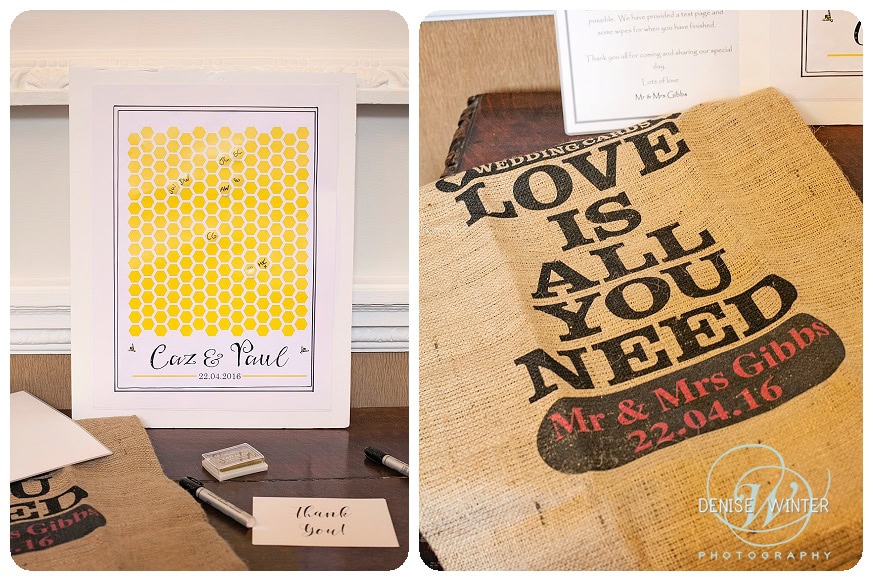 CG
Caz & Paul
22.04.2016
Thank
You!
U
ED
Gibbs
.16
possible. We have provided a test page and
some wipes for when you have finished.
Thank you all for coming and sharing our special
day.
Lots of love
Mr & Mrs Gibbs
WEDDING CARDS
LOVE
IS
ALL
YOU
NEED
Mr & Mrs Gibbs
22.04.16
DENISE WINTER
W
PHOTOGRAPHY